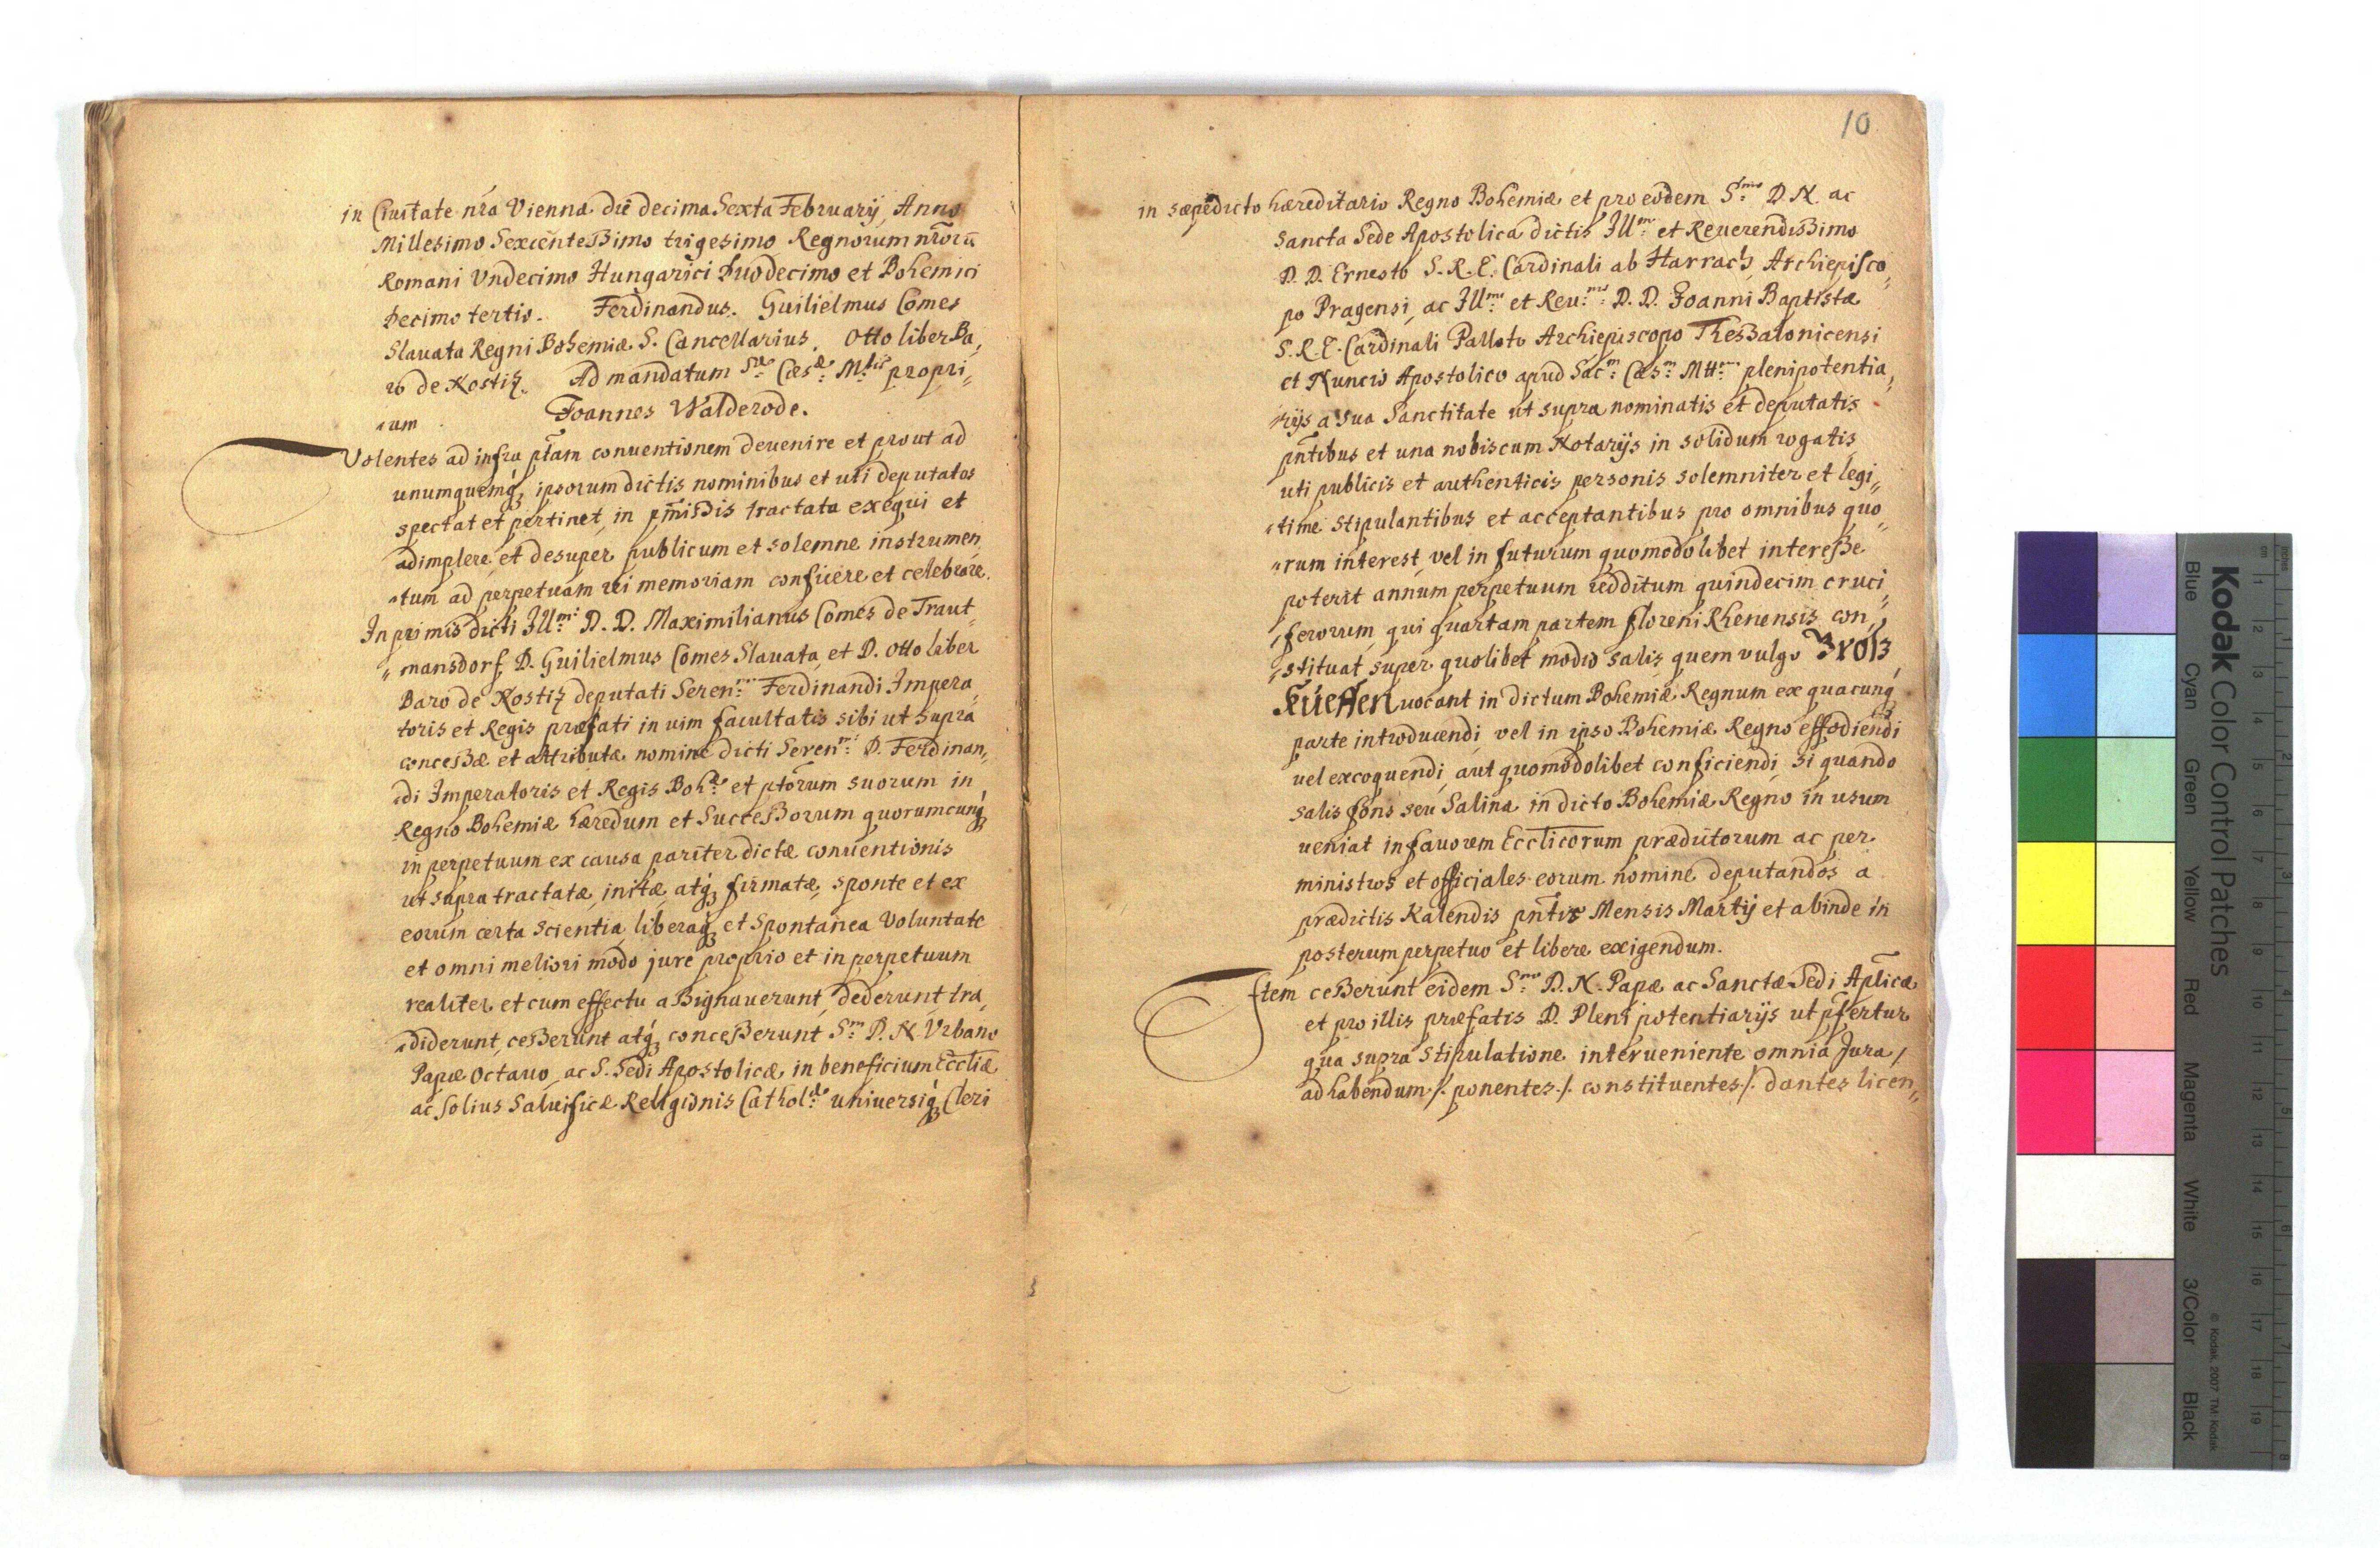 in Ciuitate nr̃a Vienna die decima Sexta February, Anno
Millesimo Sexcenteßimo trigesimo Regnorum nr̃orũ
Romani Vndecimo Hungarici Duodecimo et Bohemici
Decimo tertio. Ferdinandus. Guilielmus Comes
Slauata Regni Bohemiæ S. Cancellarius. Otto liber Ba„
ro de Nostiz. Ad mandatum S:æ Cæs:æ M:tis propri„
„um Joannes Walderode.
Volentes ad infra pt̃am conuentionem deuenire et prout ad
unumquemq́ꝫ ipsorum dictis nominibus et uti deputatos
spectat et pertinet, in pm̃ißis tractata exequi et
adimplere, et desuper publicum et solemne instrumen
„tum ad perpetuam rei memoriam conficere et celebrare.
In primis dicti Ill:mi D. D. Maximilianus Comes de Traut„
„mansdorf, D. Guilielmus Comes Slauata, et D. Otto liber
Baro de Nostiz deputati Seren:mi Ferdinandi Impera„
toris et Regis præfati in uim facultatis sibi ut supra
conceßæ et attributæ nomine dicti Seren:mi D. Ferdinan„
„di Imperatoris et Regis Boh:æ et pt̃orum suorum in
Regno Bohemiæ hæredum et Succeßorum quorumcunq́ꝫ
in perpetuum ex causa pariter dictæ conuentionis
ut supra tractatæ, initæ, atq́ꝫ firmatæ, sponte et ex
eorum certa scientia, liberaq́ꝫ et Spontanea Voluntate
et omni meliori modo jure proprio et in perpetuum
realiter et cum effectu aßignauerunt, dederunt, tra„
„diderunt, ceßerunt atq́ꝫ conceßerunt S:mo D. N. Vrbano
Papæ Octauo, ac S. Sedi Apostolicæ, in beneficium Eccl̃iæ
ac solius Saluificæ Religionis Cathol:cæ uniuersiq́ꝫ Cleri
10
in sæpedicto hæreditario Regno Bohemiæ et pro eodem S:mo D. N. ac
Sancta Sede Apostolica dictis Ill:mo et Reuerendißimo
D. D. Ernesto S. R. E. Cardinali ab Harrach Archiepisco„
po Pragensi, ac Ill:mo et Reu:mo D. D. Joanni Baptistæ
S. R. E. Cardinali Palloto Archiepiscopo Theßalonicensi
et Nuncio Apostolico apud Sac:m Cæs:m Mtt:em plenipotentia„
rijs a Sua Sanctitate ut supra nominatis et deputatis
pñtibus et una nobiscum Notarijs in solidum rogatis
uti publicis et authenticis personis solemniter et legi„
„time stipulantibus et acceptantibus pro omnibus quo„
„rum interest, vel in futurum quomodolibet intereße
poterit annum perpetuum redditum quindecim cruci„
„ferorum, qui quartam partem floreni Rhenensis con„
„stituat, super quolibet modio salis quem vulgo Proß„
Küeffen uocant in dictum Bohemiæ Regnum ex quacunq́ꝫ
parte introducendi, vel in ipso Bohemiæ Regno effodiendi
uel excoquendi, aut quomodolibet conficiendi, si quando
salis fons seu Salina in dicto Bohemiæ Regno in usum
ueniat in fauorem Eccl̃icorum prædictorum ac per
ministros et officiales eorum nomine deputandos a
prædictis Kalendis pñtis Mensis Martij et abinde in
posterum perpetuo et libere exigendum.
Item ceßerunt eidem S:mo D. N. Papæ ac Sanctæ Sedi Apl̃icæ
et pro illis præfatis D. Plenipotentiarijs ut pf̃ertur
qua supra stipulatione interueniente omnia Jura /
ad habendum /. ponentes /. constituentes /. dantes licen„
Kodak Color Control Patches
Blue Cyan Green Yellow Red Magenta White 3/Color Black
© Kodak, 2007 TM: Kodak